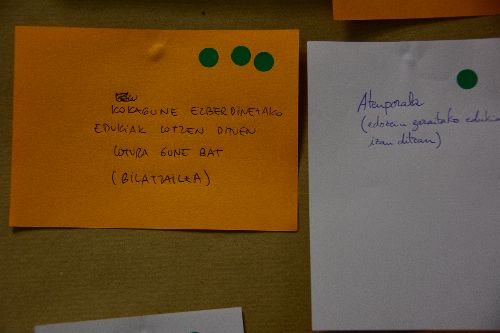 KOKAGUNE EZBERDINETAKO
EDUKIAK LOTZEN DITUEN
LOTURA GUNE BAT
(BILATZAILEA)
Atenporala
(edozein garaitako edukia
izan ditzan)